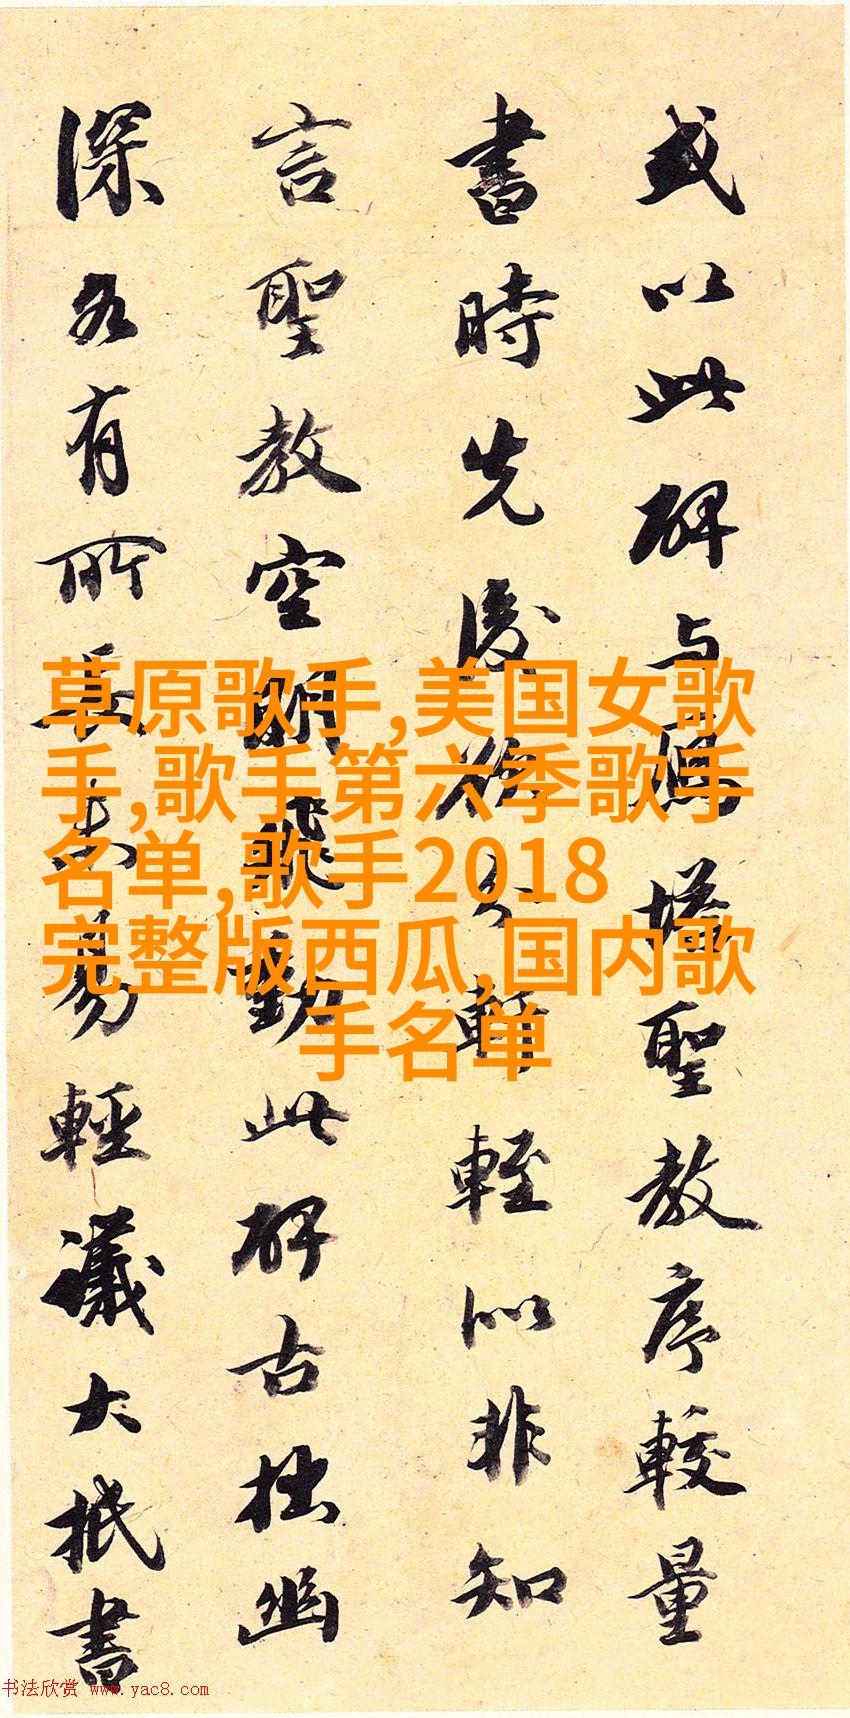 或以此碑与塔聖教序較量
書時先後為分軒輊似非知
言聖教空明飛動此碑古拙幽
深各有所長未易輕議大抵書
草原歌手,美国女歌
手,歌手第六季歌手
名单,歌手2018
完整版西瓜,国内歌
手名单
书法欣赏 www.yac8.com